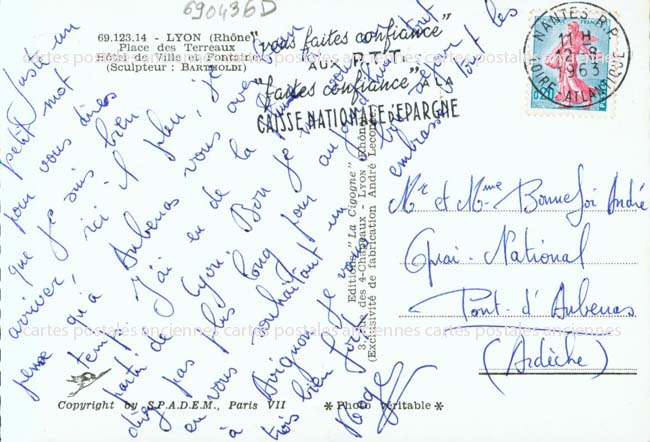 690436D
69.123.14 - LYON (Rhône)
Place des Terreaux
Hôtel de Ville et Fontaine
(Sculpteur : BARTHOLDI)
"vous faites confiance"
AUX P.T.T.
"faites confiance" A LA
CAISSE NATIONALE D'EPARGNE
NANTES R.P.
11 H
12-8
1963
LOIRE-ATLANTIQUE
0,25
Juste un
petit mot
pour vous dire
que je suis bien
arrivé, ici il pleut, je
pense qu'à Aubenas vous avez
temps
J'ai eu de la
partir de Lyon. Bon je
plus long pour aujourd'hui
en vous souhaitant un bon
à Avignon je
très bien
embrasse tout les
Roger
Editions "La Cigogne"
3, rue des 4-Chapeaux - LYON (Rhône)
(Exclusivité de fabrication André Leconte)
Mr et Mme Bonnefoi André
Quai National
Pont-d'Aubenas
(Ardèche)
Copyright by S.P.A.D.E.M., Paris VII
* Photo véritable *
cartes postales anciennes cartes postales anciennes cartes postales anciennes
cartes postales anciennes cartes postales anciennes cartes postales anciennes